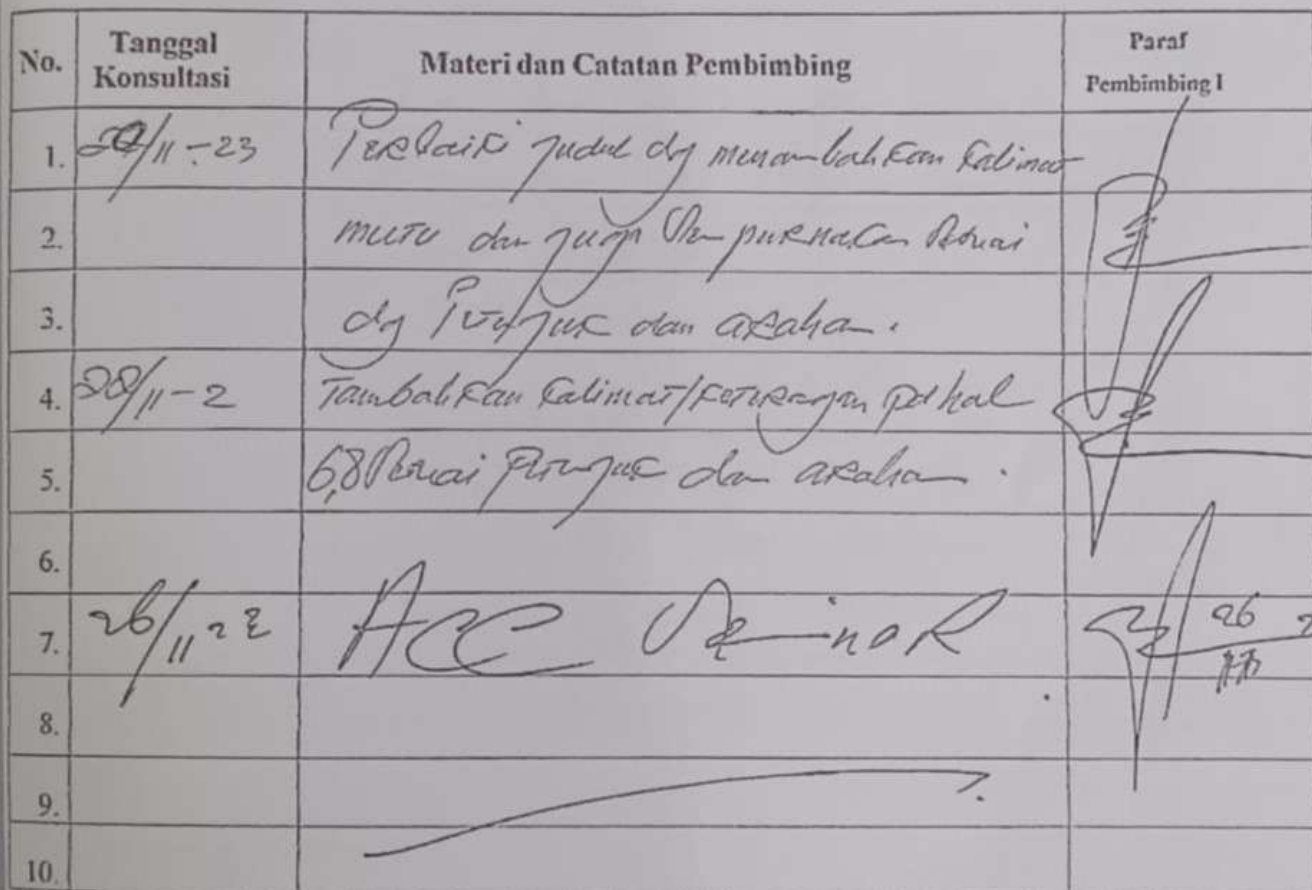 No. Tanggal Konsultasi Materi dan Catatan Pembimbing Paraf Pembimbing I
1. /11-23 Perbaiki judul dg menambahkan kalimat
2. mutu dan juga sempurnakan sesuai
3. dg petunjuk dan arahan.
4. /11-2 Tambahkan kalimat/keterangan pd hal
5. 6,8 sesuai petunjuk dan arahan.
6.
7. 26/11 ACC Seminar 26
8.
9.
10.